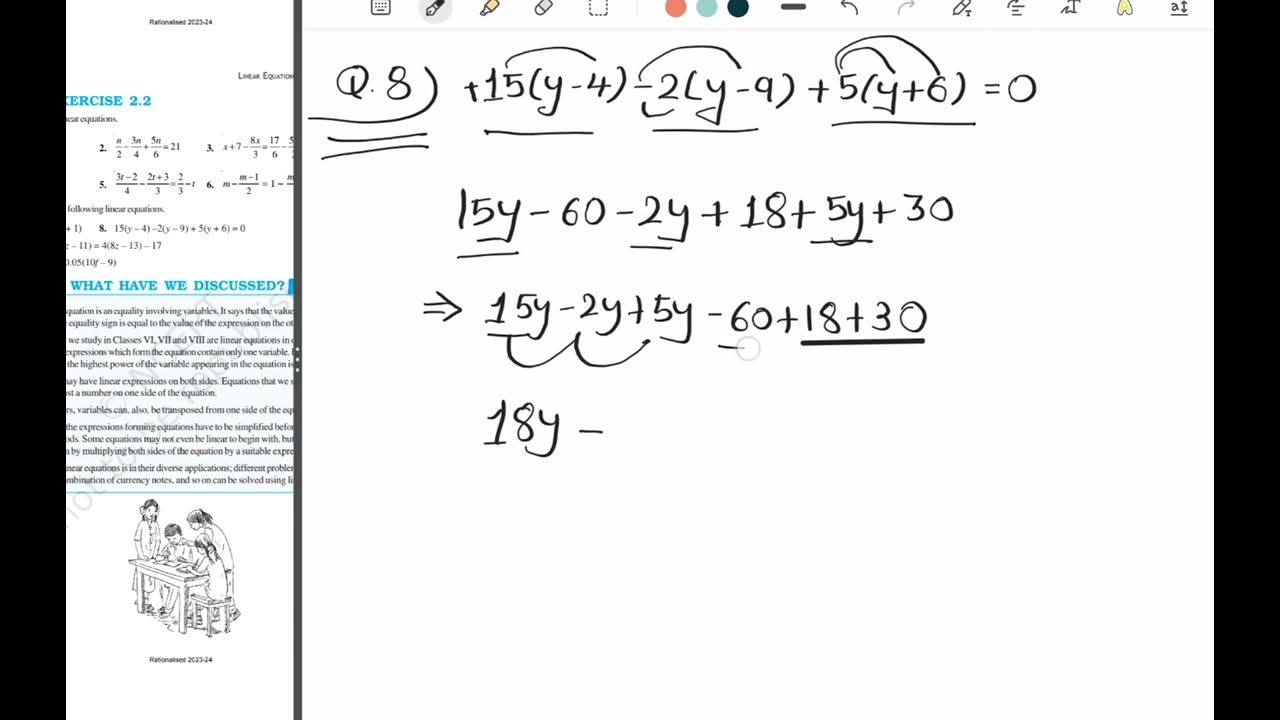 Rationalised 2023-24
LINEAR EQUATION
ERCISE 2.2
ear equations.
2. n/2 - 3n/4 + 5n/6 = 21 3. x + 7 - 8x/3 = 17/6 -
5. 3t-2/4 - 2t+3/3 = 2/3 - t 6. m - m-1/2 = 1 -
following linear equations.
+ 1) 8. 15(y – 4) –2(y – 9) + 5(y + 6) = 0
– 11) = 4(8z – 13) – 17
0.05(10f – 9)
WHAT HAVE WE DISCUSSED?
quation is an equality involving variables. It says that the value
equality sign is equal to the value of the expression on the ot
we study in Classes VI, VII and VIII are linear equations in
expressions which form the equation contain only one variable.
the highest power of the variable appearing in the equation is
ay have linear expressions on both sides. Equations that we s
st a number on one side of the equation.
rs, variables can, also, be transposed from one side of the equ
the expressions forming equations have to be simplified befor
ods. Some equations may not even be linear to begin with, but
by multiplying both sides of the equation by a suitable expre
near equations is in their diverse applications; different proble
mbination of currency notes, and so on can be solved using li
Rationalised 2023-24
Q.8) +15(y-4)-2(y-9)+5(y+6)=0
15y-60-2y+18+5y+30
⇒ 15y-2y+5y-60+18+30
18y -